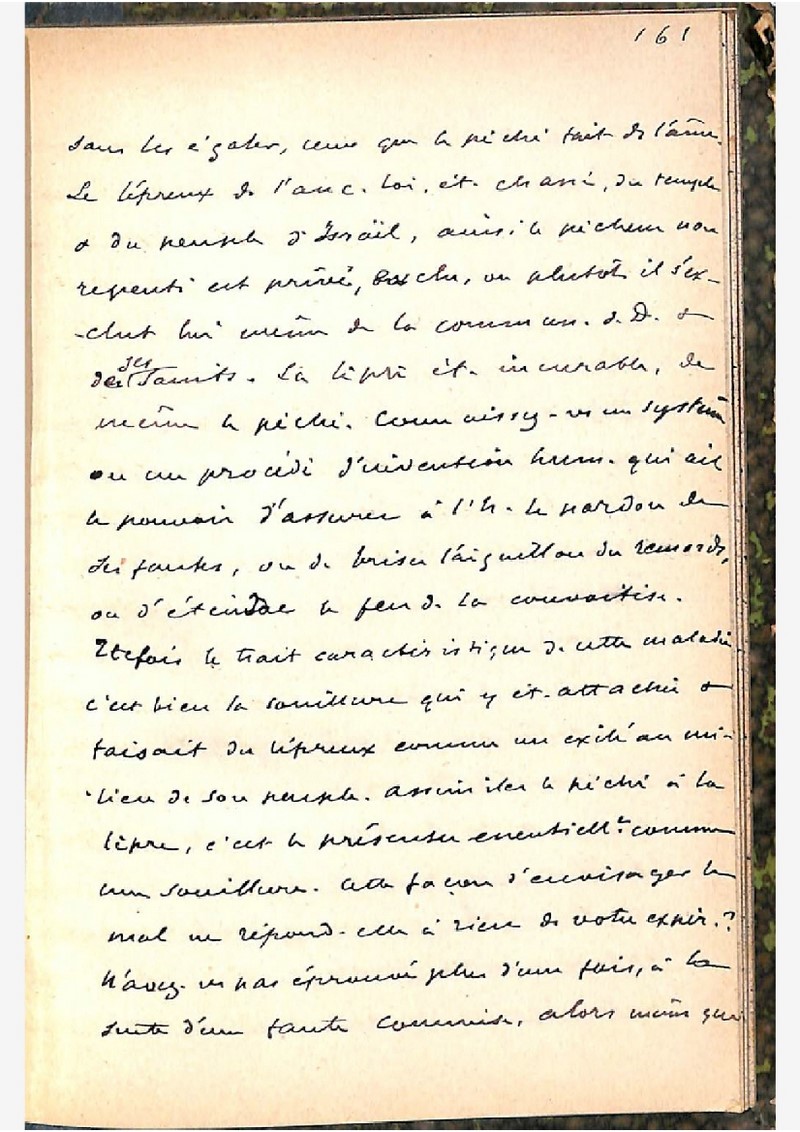 161
sans les égaler, ceux que le péché fait de l'âme.
Le lépreux de l'anc. loi. ét. chassé, du temple
& du peuple d'Israël, ainsi le pécheur non
repenti est privé, exclu, ou plutôt il s'ex-
-clut lui même de la commun. d. D. &
de ses Saints. La lèpre ét. incurable, de
même le péché. Connaissez-vs un système
ou un procédé d'invention hum. qui ait
le pouvoir d'assurer à l'h. le pardon de
ses fautes, ou de briser l'aiguillon du remords,
ou d'éteindre le feu de la convoitise.
Ttefois le trait caractéristique de cette maladie
c'est bien la souillure qui y ét. attachée &
faisait du lépreux comme un exilé au mi-
-lieu de son peuple. Assimiler le péché à la
lèpre, c'est le présenter essentiellt. comme
une souillure. Cette façon d'envisager le
mal ne répond-elle à rien de votre expér.?
N'avez-vs pas éprouvé plus d'une fois, à la
suite d'une faute commise, alors même que